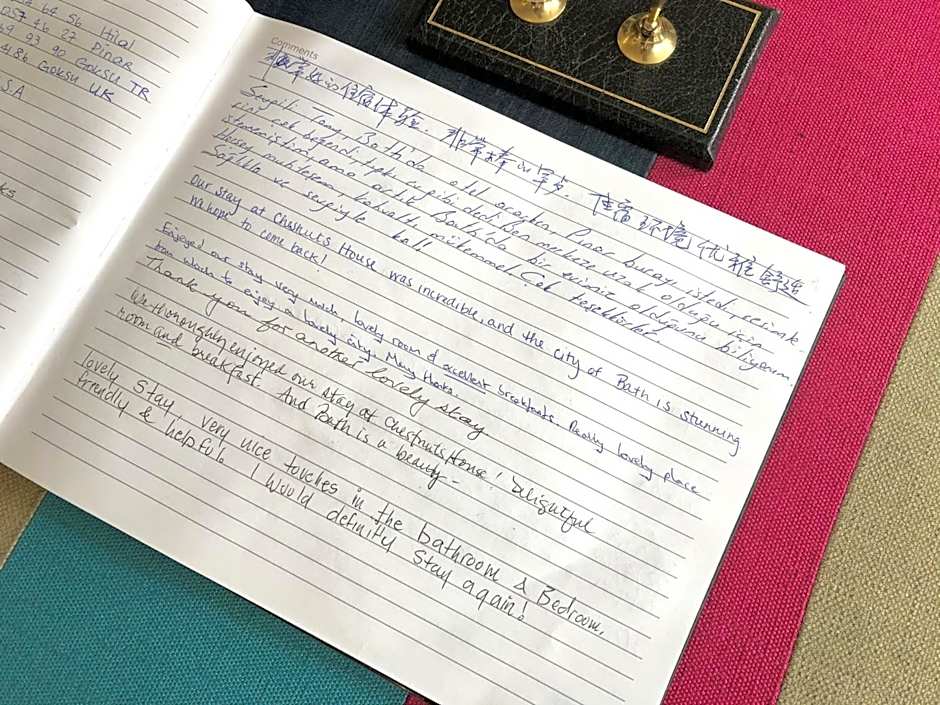 64 56 Hilal
057 46 27 Pinar
69 93 90 GOKSU TR
4186 GOKSU UK
S.A
ks
Comments
非常好的住宿体验. 非常棒的早点. 住宿环境优雅舒适
Sevgili Tony, Bath'da otel ararken Pınar burayı istedi, resimle-
rini çok beğendi tıpkı evi gibi dedi. Ben merkeze uzak olduğu için
istemedim ama artık Bath'da bir evimiz olduğunu biliyorum.
Herşey muhteşem, kahvaltı mükemmel. Çok teşekkürler.
Sağlıkla ve sevgiyle kal!
Our stay at Chesnuts House was incredible, and the city of Bath is stunning
We hope to come back!
Enjoyed our stay very much, lovely room & excellent breakfasts. Really lovely place
from which to enjoy a lovely city. Many thanks.
Thank you for another lovely stay
We thoroughly enjoyed our stay at Chestnuts House! Delightful
room and breakfast. And Bath is a beauty-
lovely stay, very nice touches in the bathroom & Bedroom.
friendly & helpful. I would definitly stay again!